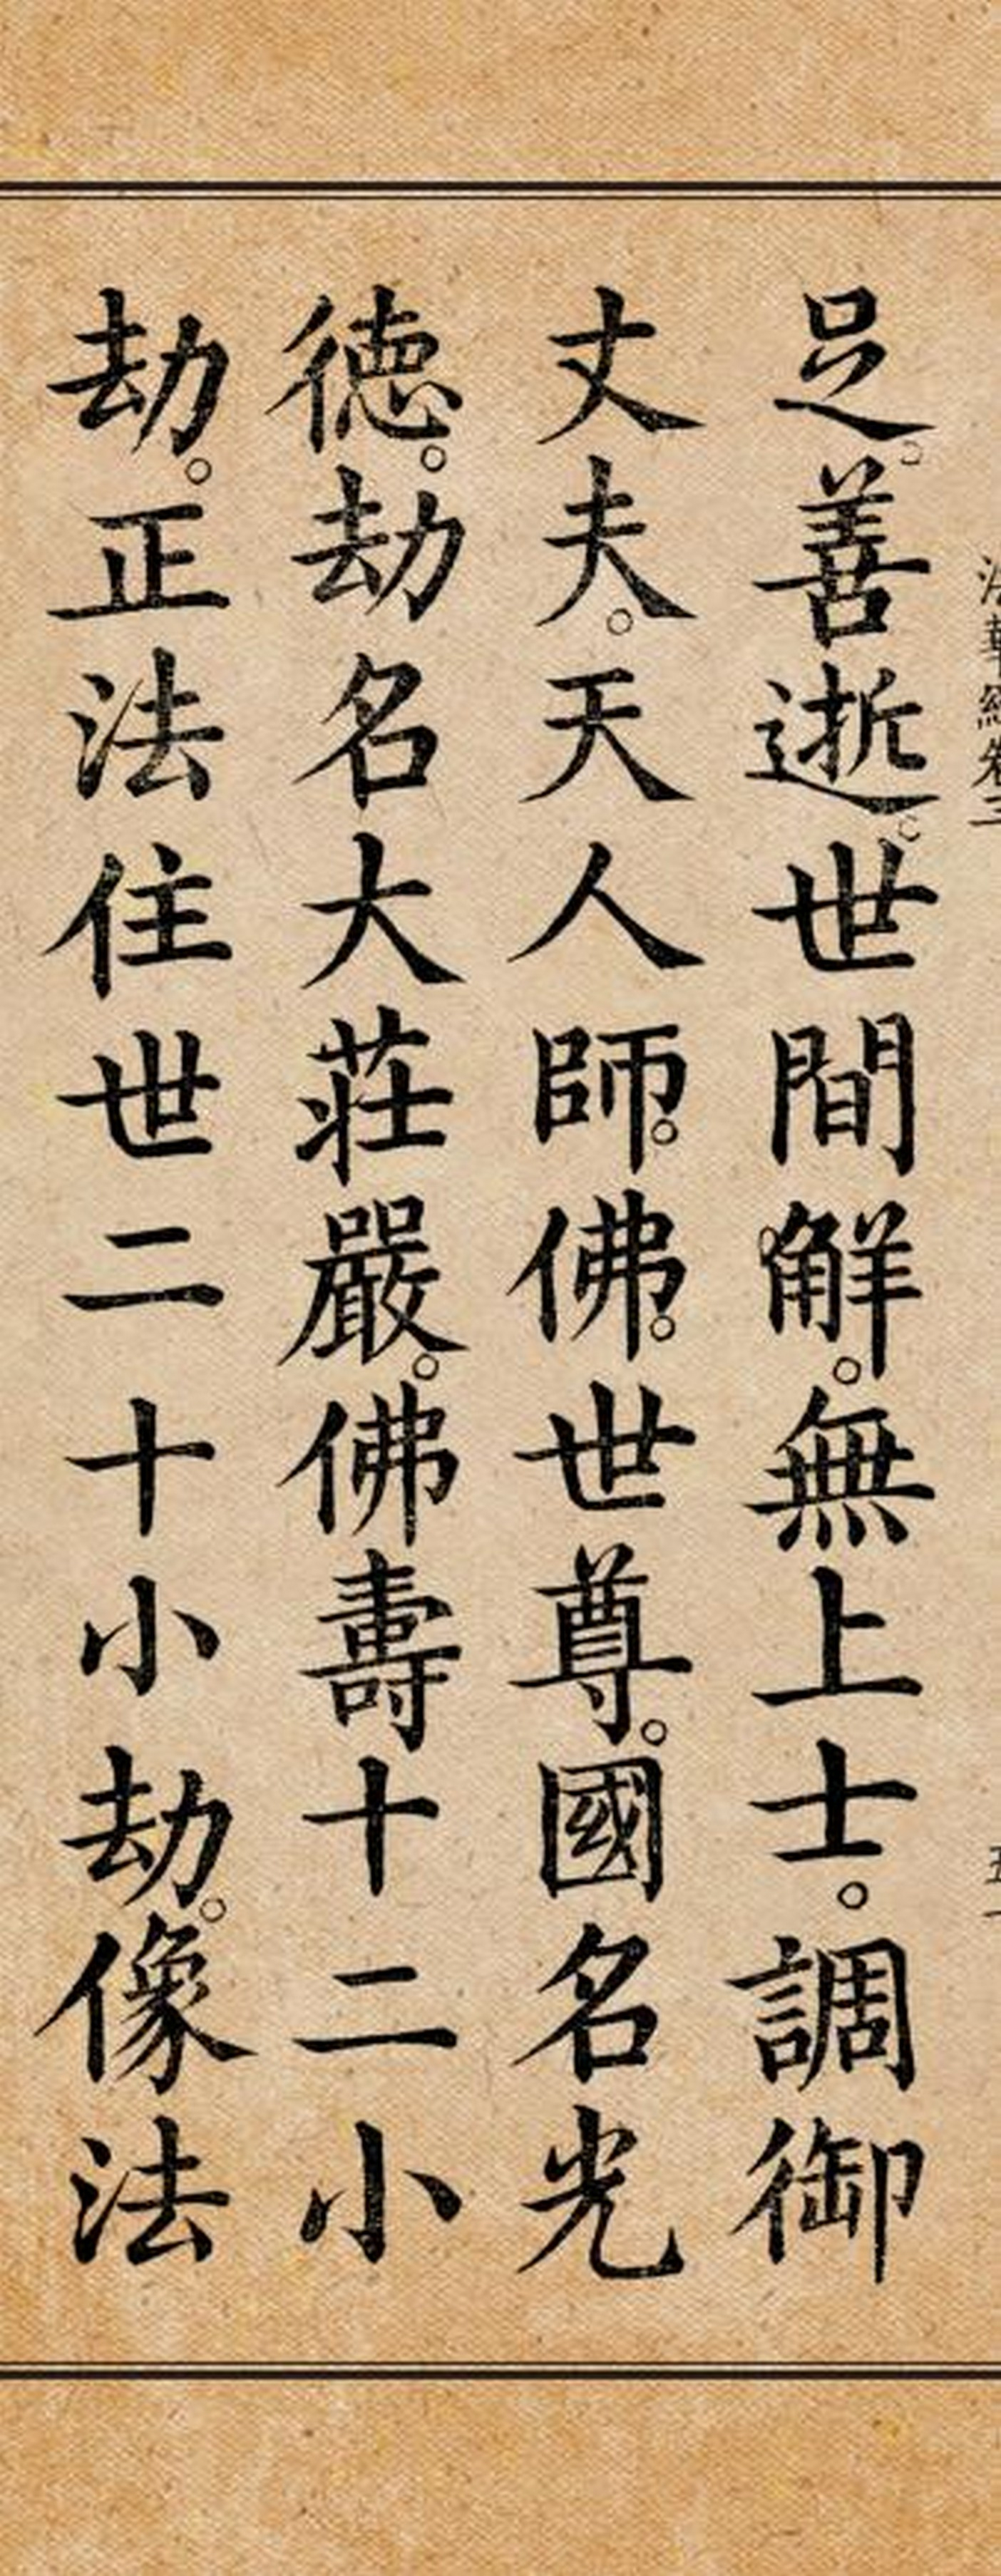 法華經卷三
足。善逝。世間解。無上士。調御
丈夫。天人師。佛。世尊。國名光
德。劫名大莊嚴。佛壽十二小
劫。正法住世二十小劫。像法